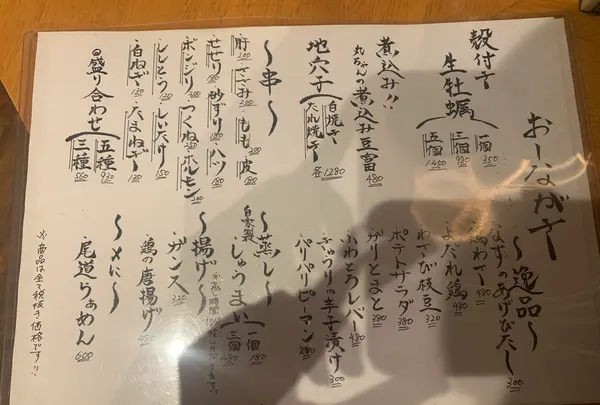 おーながき
殻付き
生牡蠣
一個 350
三個 980
五個 1480
煮込み!!
丸ちゃんの煮込み豆富 480
地穴子
白焼き
たれ焼き
各1280
〜串〜
肝 200
ささみ 200
もも 200
皮 180
せせり 200
砂ずり 180
ハツ 180
ボンジリ 200
つくね 250
ホルモン 200
ししとう 150
しいたけ 150
白ねぎ 150
たまねぎ 120
◎盛り合わせ
五種 930
三種 560
〜逸品〜
なすのあげびたし 300
鶏わさ 480
よだれ鶏 480
わさび枝豆 320
ポテトサラダ 380
がりとまと 380
ふわとろレバー 480
きゅうりの辛子漬け 300
パリパリピーマン 280
〜蒸し〜
自家製
しゅうまい
一個 180
三個 480
〜揚げ〜
ガンス 320
鶏の唐揚げ 480
〜〆に〜
尾道らぁめん 600
※商品は全て税抜き価格です!!